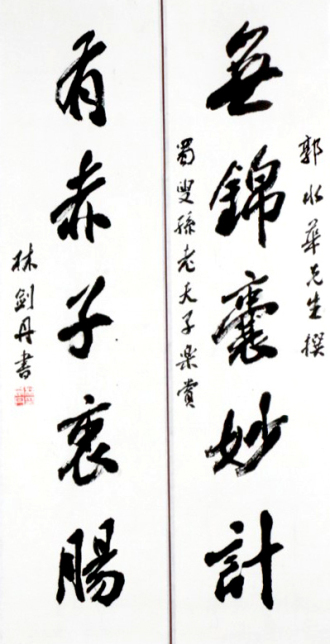 郭水華先生撰
無錦囊妙計
蜀叟孫老夫子樂賞
有赤子衷腸
林剑丹書